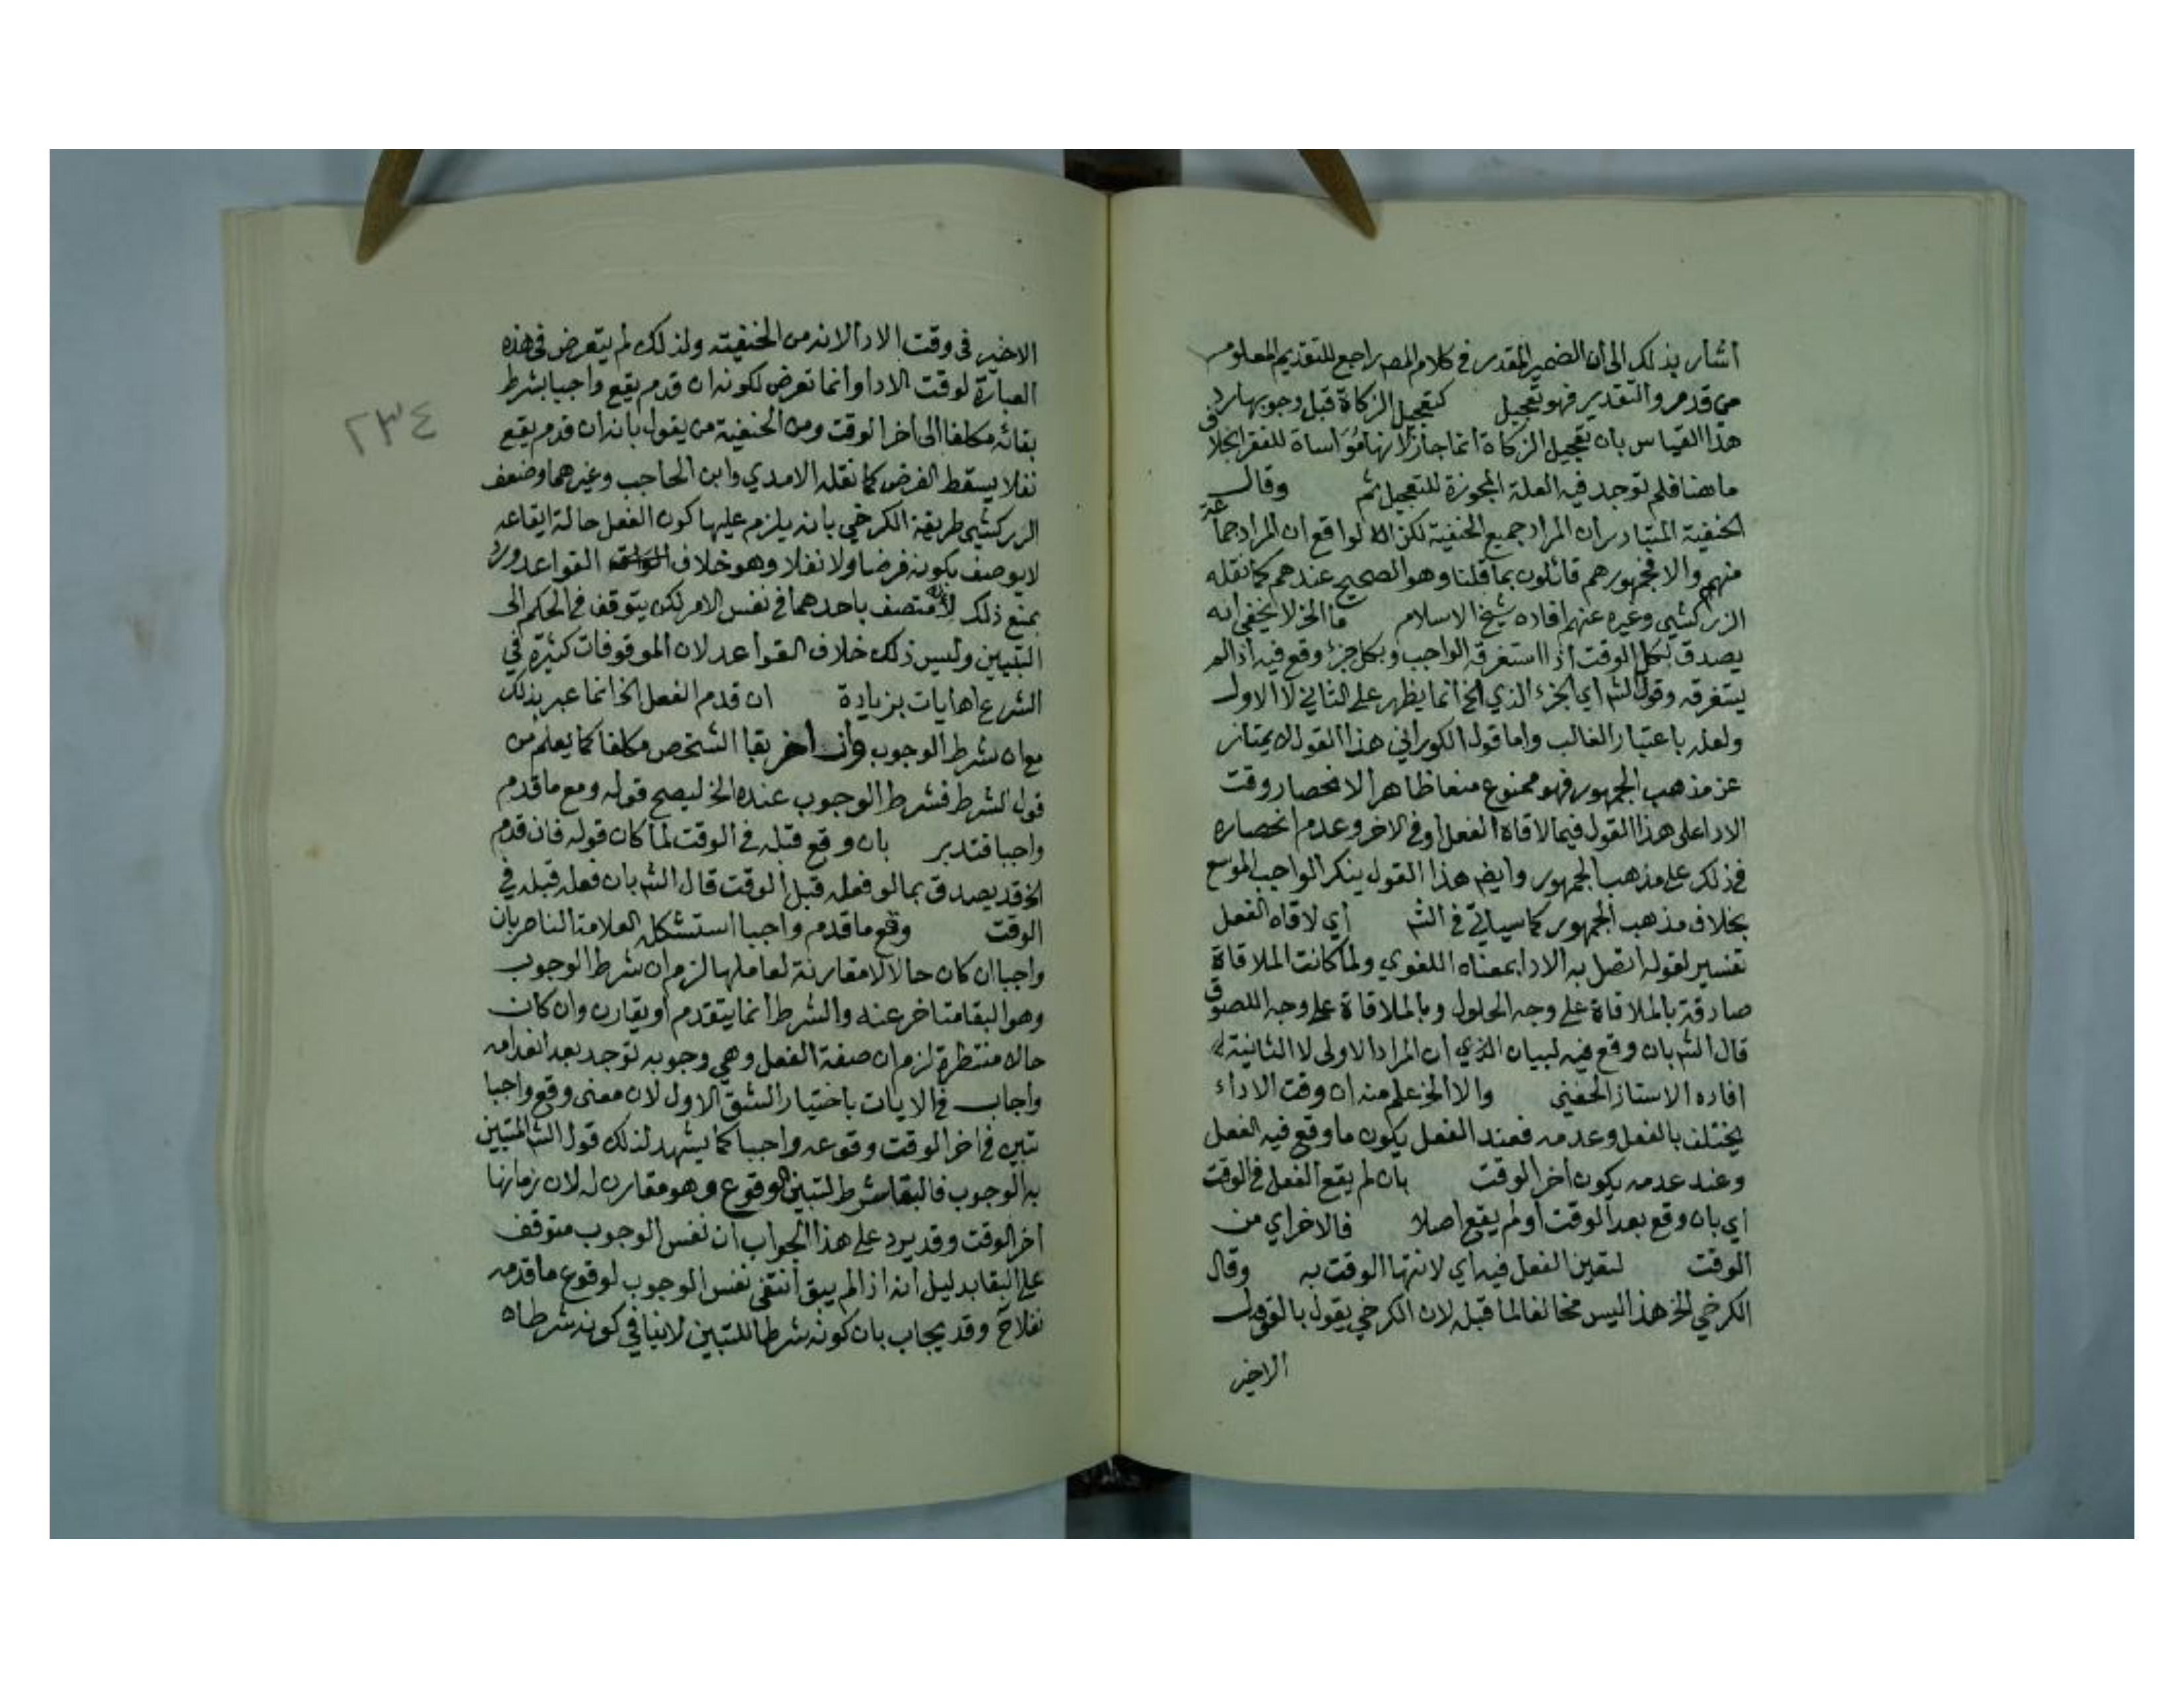 اشار بذلك الى ان الضمير المقدر في كلام المصـ راجع للتقديم المعلوم
من قدم والتقدير فهو تعجيل كتعجيل الزكاة قبل وجوبها رد
هذا القياس بان تعجيل الزكاة انما جاز لانها مُوَاساة للفقرا بخلاف
ما هنا فلم توجد فيه العلة المجوزة للتعجيل ثم وقال
الحنفية المتبادر ان المراد جميع الحنفية لكن الواقع ان المراد جماعة
منهم والا فجمهورهم قائلون بما قلنا وهو الصحيح عندهم كما نقله
الزركشي وغيره عنهم افاده شيخ الاسلام ما الخ لا يخفى انه
يصدق بكل الوقت اذا استغرقه الواجب وبكل جزء وقع فيه اذا لم
يستغرقه وقول الشـ اي الجزء الذي الخ انما يظهر على الثاني لا الاول
ولعله باعتبار الغالب واما قول الكوراني هذا القول لا يمتاز
عن مذهب الجمهور فهو ممنوع منعا ظاهرا لانحصار وقت
الادا على هذا القول فيما لاقاه الفعل او في الاخر وعدم انحصاره
في ذلك على مذهب الجمهور وايضـ هذا القول ينكر الواجب الموسع
بخلاف مذهب الجمهور كما سياتي في الشـ اي لاقاه الفعل
تفسير لقوله اتصل به الادا بمعناه اللغوي ولما كانت الملاقاة
صادقة بالملاقاة على وجه الحلول وبالملاقاة على وجه اللصوق
قال الشـ بان وقع فيه لبيان الذي ان المراد الاولى لا الثانية
افاده الاستاذ الحفني والا الخ علم منه ان وقت الاداء
يختلف بالفعل وعدمه فعند الفعل يكون ما وقع فيه الفعل
وعند عدمه يكون اخر الوقت بان لم يقع الفعل في الوقت
اي بان وقع بعد الوقت او لم يقع اصلا فالاخر اي من
الوقت لتعين الفعل فيه اي لانتها الوقت به وقال
الكرخي الخ هذا ليس مخالفا لما قبله لان الكرخي يقول بالقول
الاخير
الاخير في وقت الادا لانه من الحنفية ولذلك لم يتعرض في هذه
العبارة لوقت الادا وانما تعرض لكونه ان قدم يقع واجبا بشرط
بقائه مكلفا الى اخر الوقت ومن الحنفية من يقول بانه ان قدم يقع
نفلا يسقط الفرض كما نقله الامدي وابن الحاجب وغيرهما وضعف
الزركشي طريقة الكرخي بانه يلزم عليها كون الفعل حالة ايقاعه
لا يوصف بكونه فرضا ولا نفلا وهو خلاف القواعد ورد
بمنع ذلك لانه متصف باحدهما في نفس الامر لكن يتوقف في الحكم الى
التبيين وليس ذلك خلاف القواعد لان الموقوفات كثيرة في
الشرع اهـ ايات بزيادة ان قدم الفعل الخ انما عبر بذلك
مع ان شرط الوجوب وان اخر بقا الشخص مكلفا كما يعلم من
قول الشرط فشرط الوجوب عنده الخ ليصح قوله وقع ما قدم
واجبا فتدبر بان وقع قبله في الوقت لما كان قوله فان قدم
الخ قد يصدق بما لو فعله قبل الوقت قال الشـ بان فعله قبله في
الوقت وقع ما قدم واجبا استشكله العلامة الناصر بان
واجبا ان كان حالا مقارنة لعاملها لزم ان شرط الوجوب
وهو البقا متاخر عنه والشرط انما يتقدم او يقارن وان كان
حالا منتظرة لزم ان صفة الفعل وهي وجوبه توجد بعد انعدامه
واجاب في الايات باختيار الشق الاول لان معنى وقع واجبا
تبين في اخر الوقت وقوعه واجبا كما يشهد لذلك قول الشـ المتبين
به الوجوب فالبقا شرط لتبين الوقوع وهو مقارن له لان زمانها
اخر الوقت وقد يرد على هذا الجواب ان نفس الوجوب متوقف
على البقا بدليل انه اذا لم يبق انتفى نفس الوجوب لوقوع ما قدمه
نفلا ح وقد يجاب بان كونه شرطا للتبين لا ينافي كونه شرطا
٢٣٤